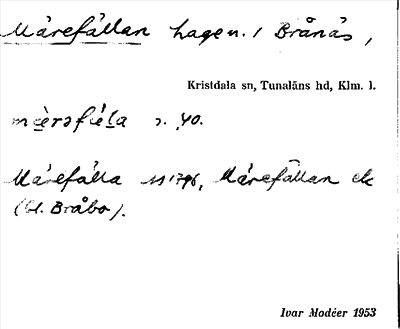 Márefállan hagen. i Brånás,
Kristdala sn, Tunaläns hd, Klm. l.
40.
Márefálla 1796, Márefällan ek
(bl. Bråbo).
Ivar Modéer 1953